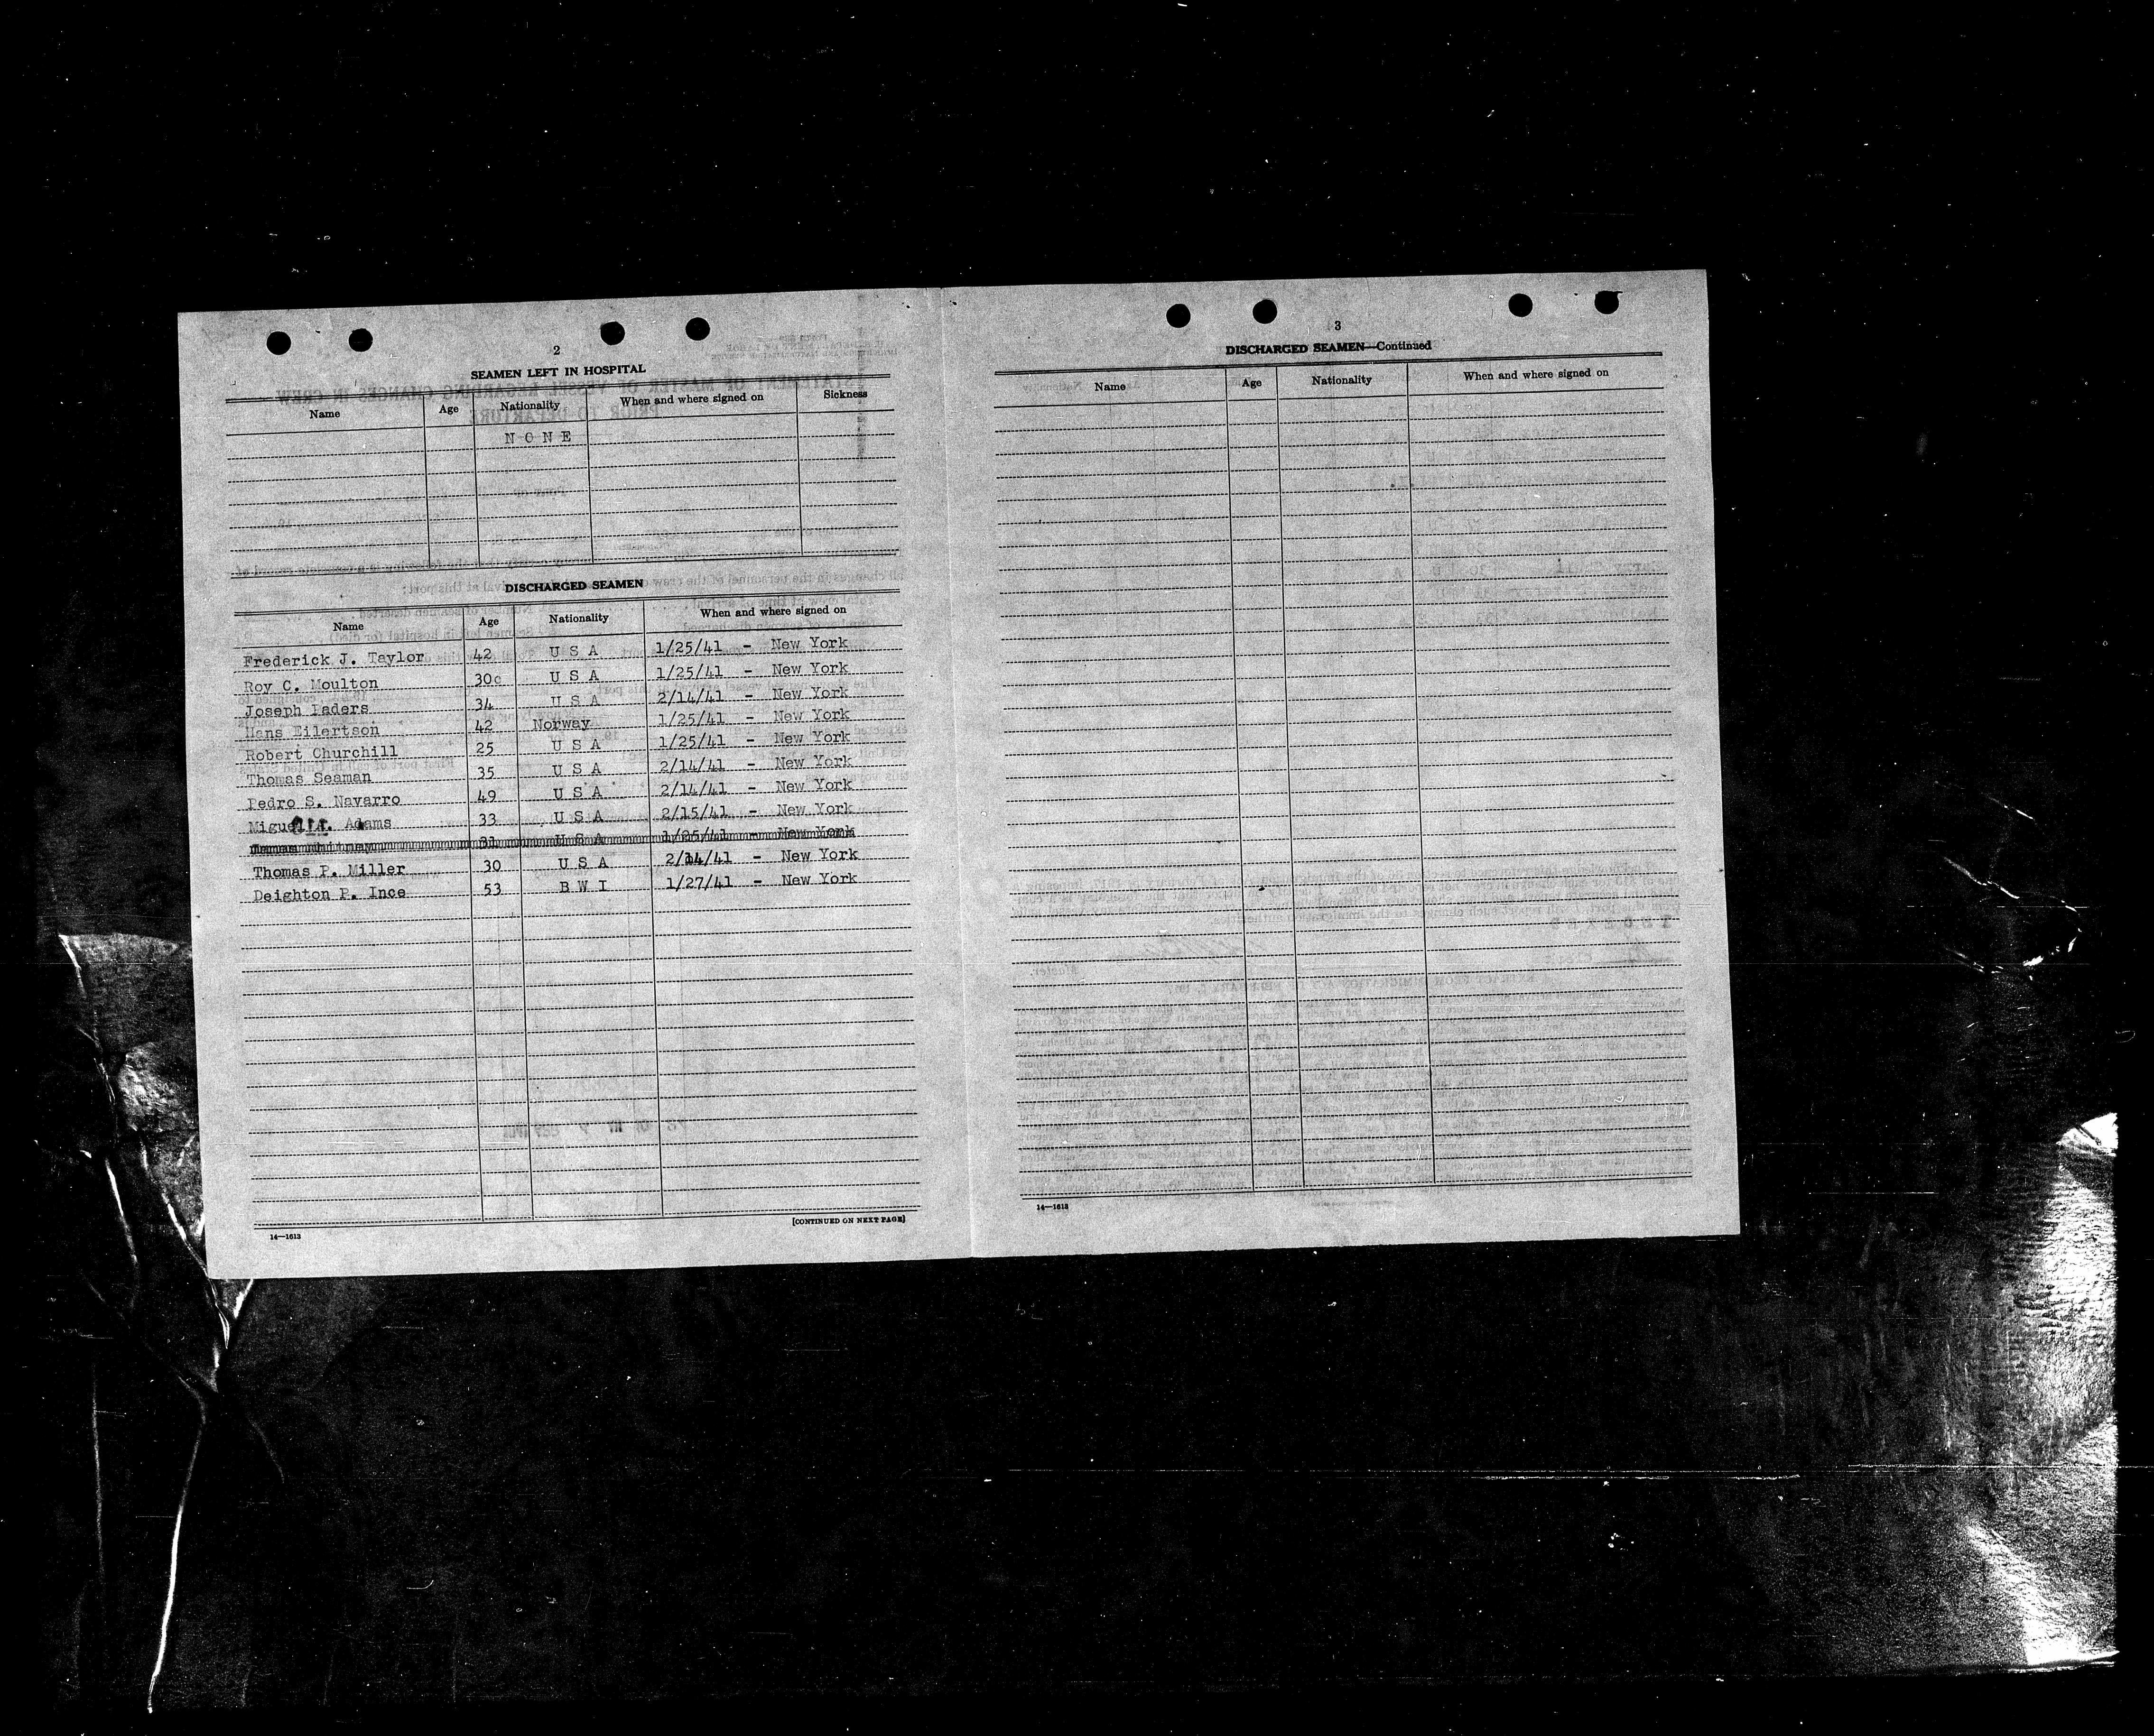 2
SEAMEN LEFT IN HOSPITAL
Name Age Nationality When and where signed on Sickness
N O N E
DISCHARGED SEAMEN
Name Age Nationality When and where signed on
Frederick J. Taylor 42 U S A 1/25/41 - New York
Roy C. Moulton 30 U S A 1/25/41 - New York
Joseph 34 U S A 2/14/41 - New York
Hans Eilertson 42 Norway 1/25/41 - New York
Robert Churchill 25 U S A 1/25/41 - New York
Thomas Seaman 35 U S A 2/14/41 - New York
Pedro S. Navarro 49 U S A 2/14/41 - New York
Miguel Adams 33 U S A 2/15/41 - New York
31 U S A 1/25/41 - New York
Thomas P. Miller 30 U S A 2/14/41 - New York
Deighton P. Ince 53 B W I 1/27/41 - New York
[CONTINUED ON NEXT PAGE]
14—1613
3
DISCHARGED SEAMEN—Continued
Name Age Nationality When and where signed on
14—1613